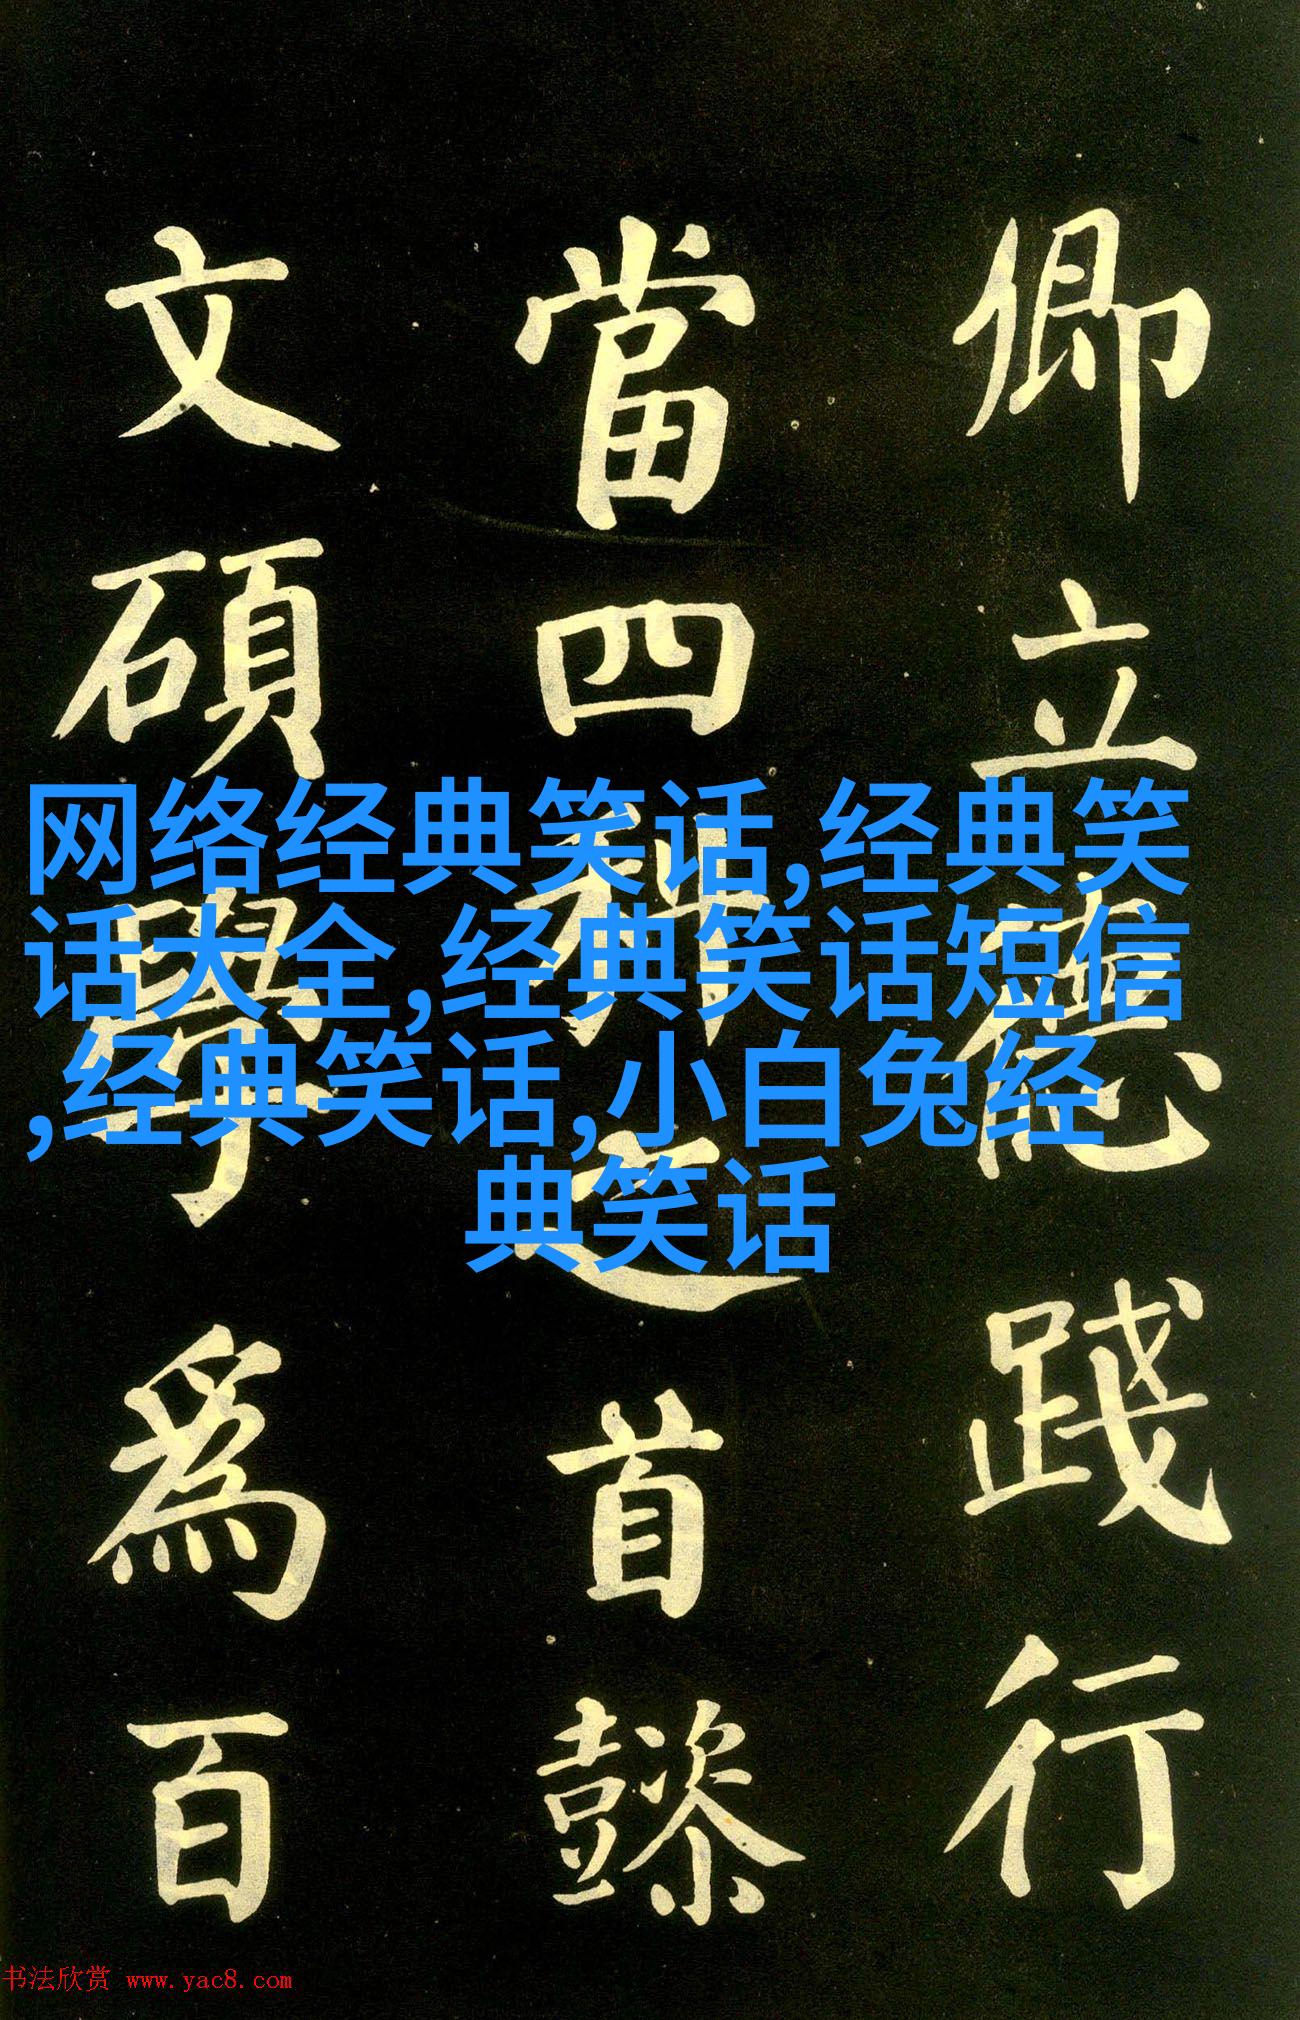 卿立德踐行
當四科之首懿
文碩學為百
网络经典笑话,经典笑
话大全,经典笑话短信
,经典笑话,小白兔经
典笑话
书法欣赏 www.yac8.com